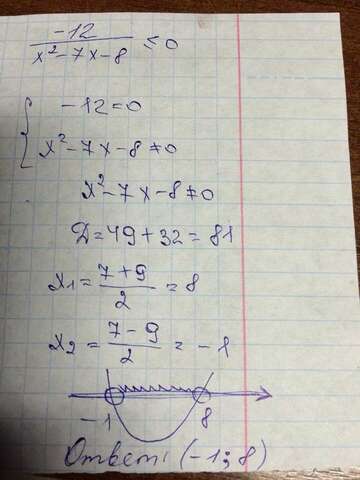 -12 / (x² - 7x - 8) ≤ 0
{ -12 = 0
x² - 7x - 8 ≠ 0
x² - 7x - 8 ≠ 0
Д = 49 + 32 = 81
x₁ = (7 + 9) / 2 = 8
x₂ = (7 - 9) / 2 = -1
-1 8
Ответ: (-1; 8)